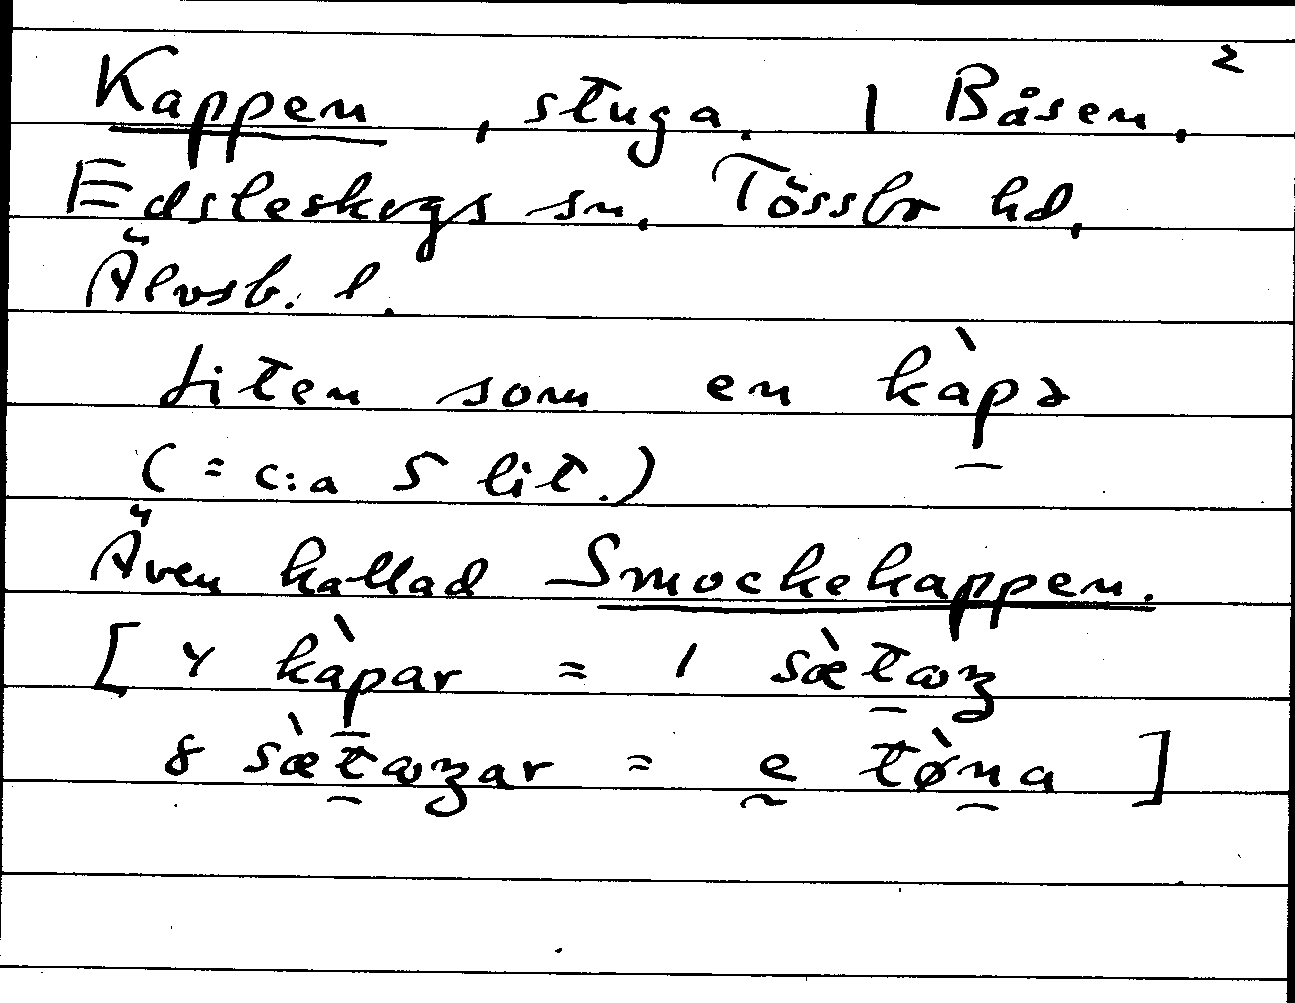 Kappen, stuga. 1 Båsen, 2
Edsleskogs sn. Tössbo hd,
Älvsb. l.
Liten som en kàpə
(= c:a 5 lit.)
Även kallad Smockekappen.
[ 4 kàpar = 1 sæ̀tıŋ
8 sæ̀tıŋar = e tø̀na ]